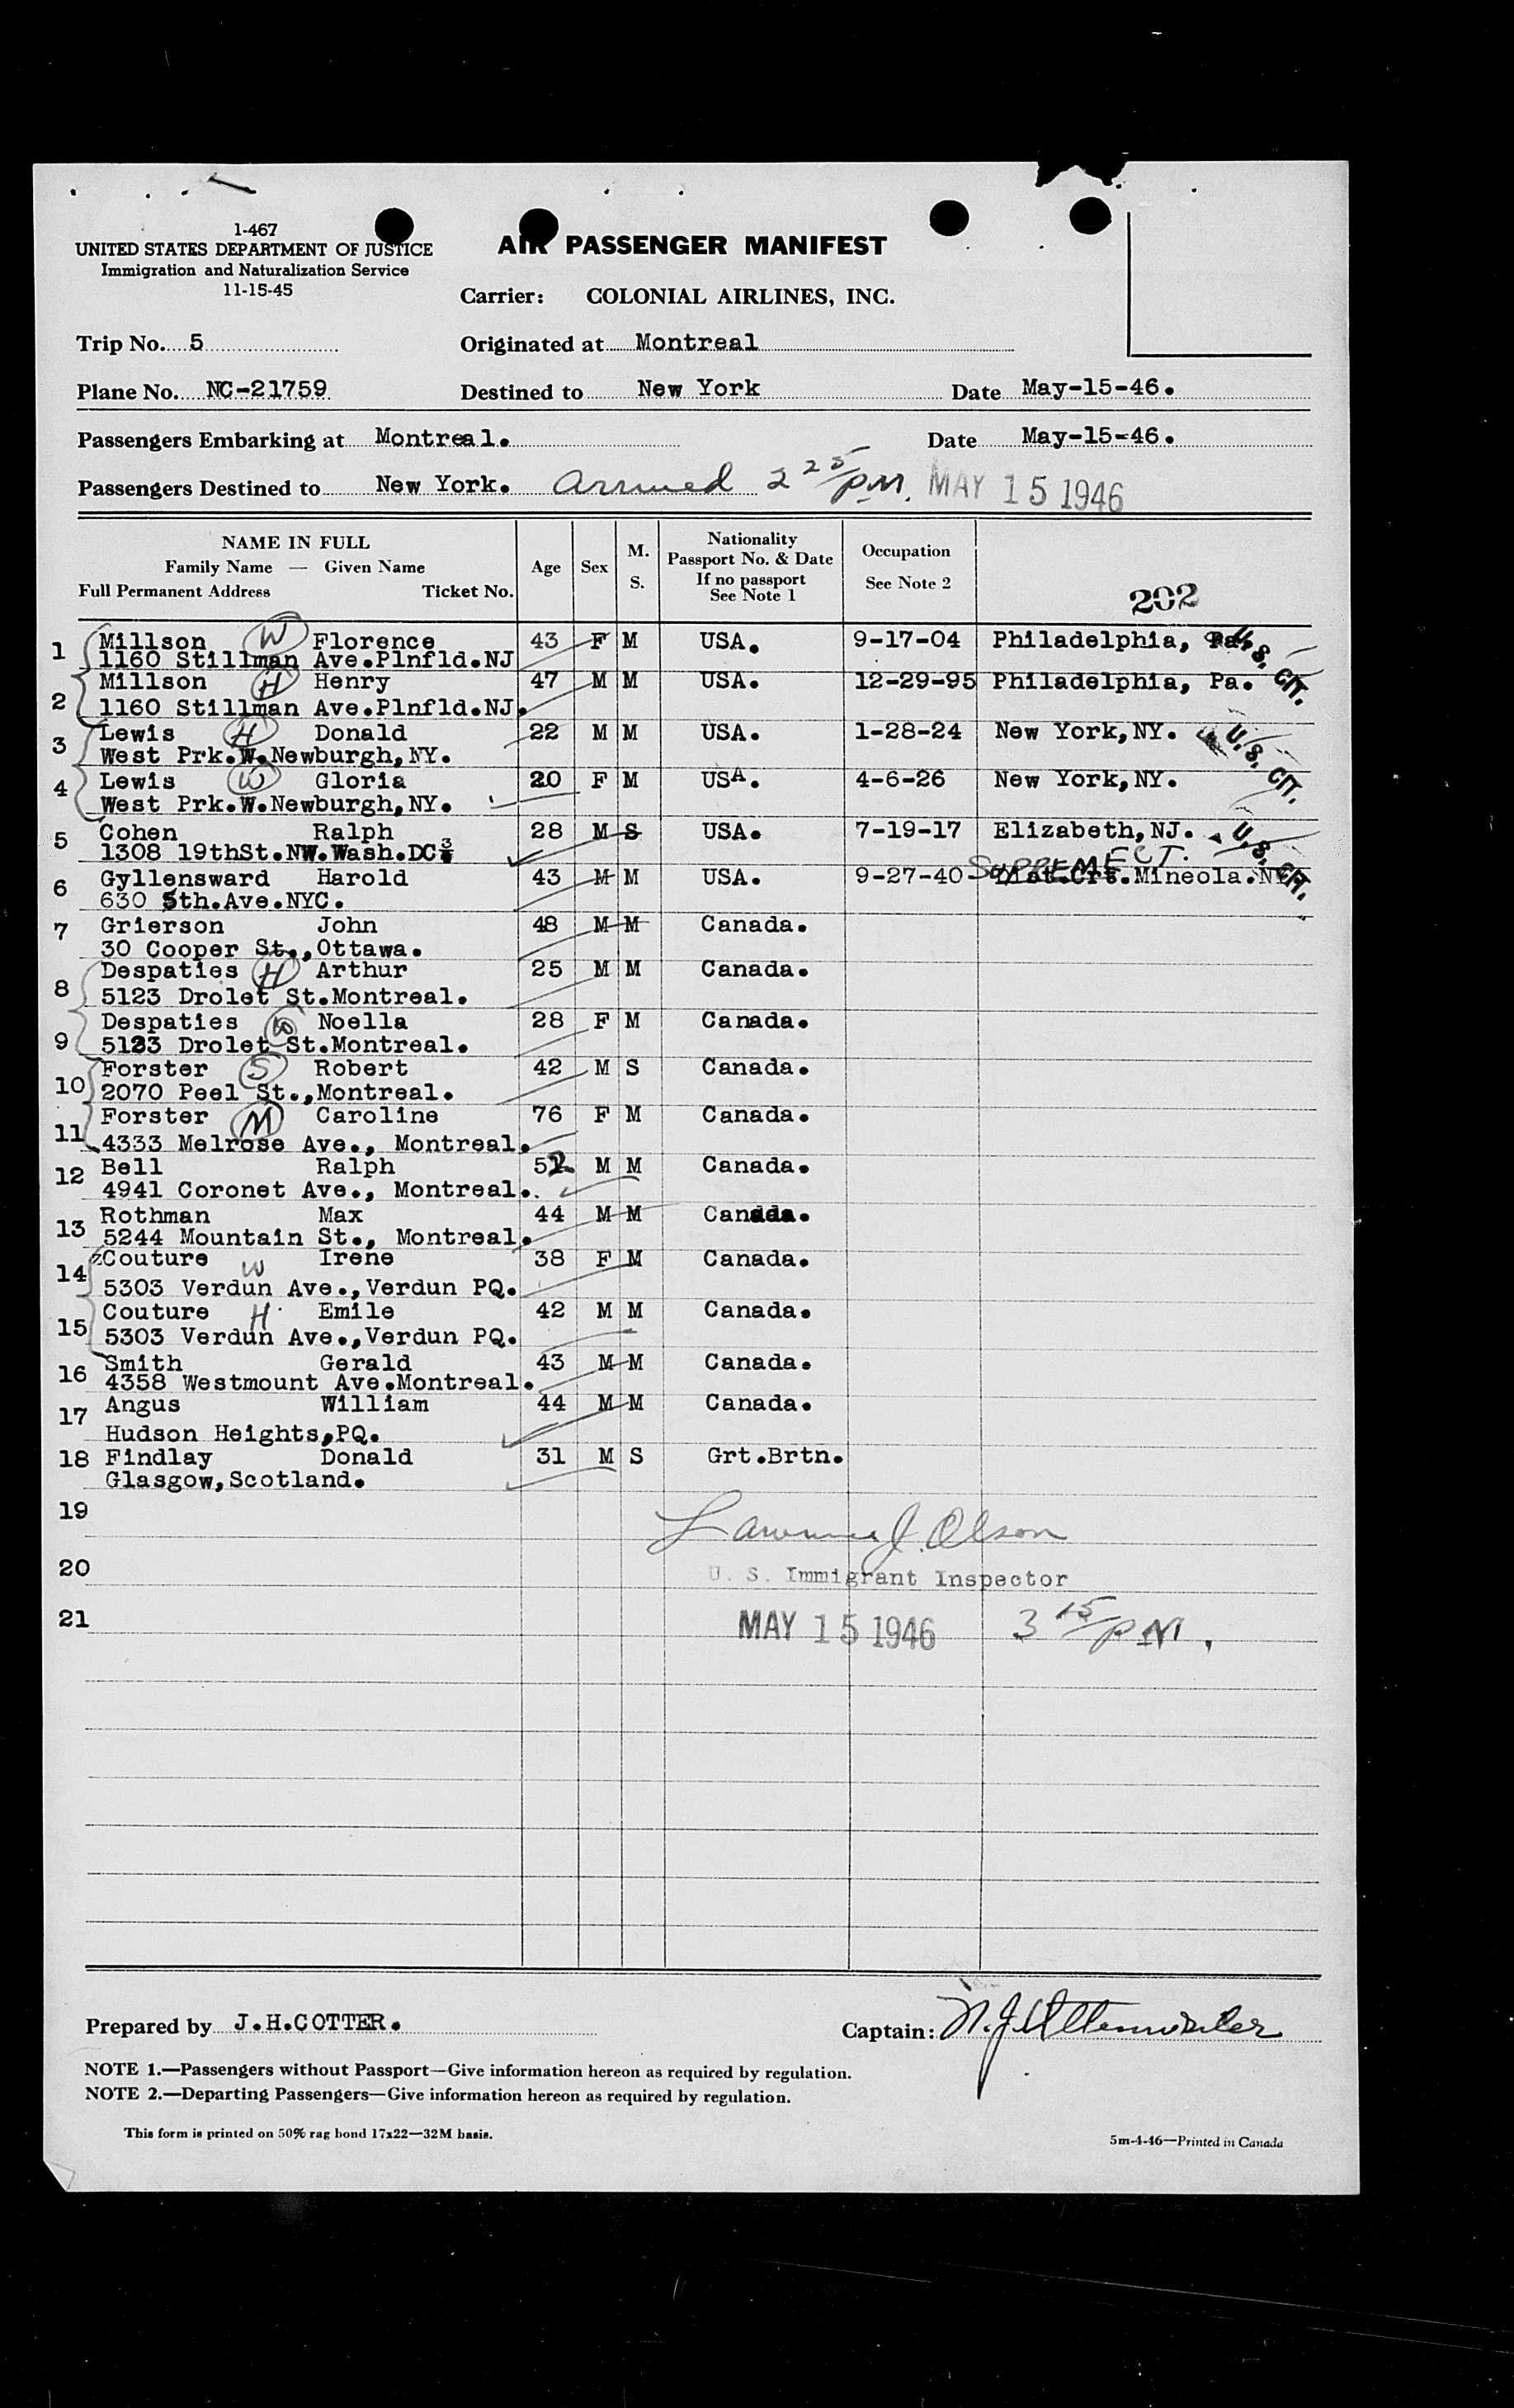 1-467
UNITED STATES DEPARTMENT OF JUSTICE
Immigration and Naturalization Service
11-15-45
AIR PASSENGER MANIFEST
Carrier: COLONIAL AIRLINES, INC.
Trip No. 5 Originated at Montreal
Plane No. NC-21759 Destined to New York Date May-15-46.
Passengers Embarking at Montreal. Date May-15-46.
Passengers Destined to New York. Arrived 2 25/PM. MAY 15 1946
NAME IN FULL
Family Name — Given Name
Full Permanent Address Ticket No.
Age Sex M. S.
Nationality
Passport No. & Date
If no passport
See Note 1
Occupation
See Note 2
202
1 Millson W Florence 43 F M USA. 9-17-04 Philadelphia, Pa. U.S. CIT.
1160 Stillman Ave.Plnfld.NJ
2 Millson H Henry 47 M M USA. 12-29-95 Philadelphia, Pa.
1160 Stillman Ave.Plnfld.NJ.
3 Lewis H Donald 22 M M USA. 1-28-24 New York,NY. U.S. CIT.
West Prk.W.Newburgh,NY.
4 Lewis W Gloria 20 F M USA. 4-6-26 New York,NY.
West Prk.W.Newburgh,NY.
5 Cohen Ralph 28 M S USA. 7-19-17 Elizabeth,NJ. U.S. CIT.
1308 19thSt.NW.Wash.DC
SUPREME CT.
6 Gyllensward Harold 43 M M USA. 9-27-40 Dist.Crt.Mineola.NY
630 5th.Ave.NYC.
7 Grierson John 48 M M Canada.
30 Cooper St.,Ottawa.
8 Despaties H Arthur 25 M M Canada.
5123 Drolet St.Montreal.
9 Despaties W Noella 28 F M Canada.
5123 Drolet St.Montreal.
10 Forster S Robert 42 M S Canada.
2070 Peel St.,Montreal.
11 Forster M Caroline 76 F M Canada.
4333 Melrose Ave., Montreal.
12 Bell Ralph 52 M M Canada.
4941 Coronet Ave., Montreal.
13 Rothman Max 44 M M Canada.
5244 Mountain St., Montreal.
14 Couture W Irene 38 F M Canada.
5303 Verdun Ave.,Verdun PQ.
15 Couture H Emile 42 M M Canada.
5303 Verdun Ave.,Verdun PQ.
16 Smith Gerald 43 M M Canada.
4358 Westmount Ave.Montreal.
17 Angus William 44 M M Canada.
Hudson Heights,PQ.
18 Findlay Donald 31 M S Grt.Brtn.
Glasgow,Scotland.
19
Lawrence J. Olson
20
U. S. Immigrant Inspector
21
MAY 15 1946 3 15/PM.
Prepared by J.H.COTTER. Captain:
NOTE 1.—Passengers without Passport—Give information hereon as required by regulation.
NOTE 2.—Departing Passengers—Give information hereon as required by regulation.
This form is printed on 50% rag bond 17x22—32M basis.
5m-4-46—Printed in Canada